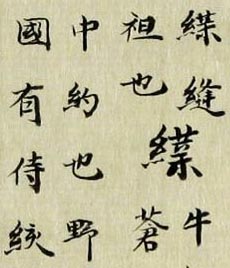 緤縫牛
袒也緤蒼
中約也野
國有侍